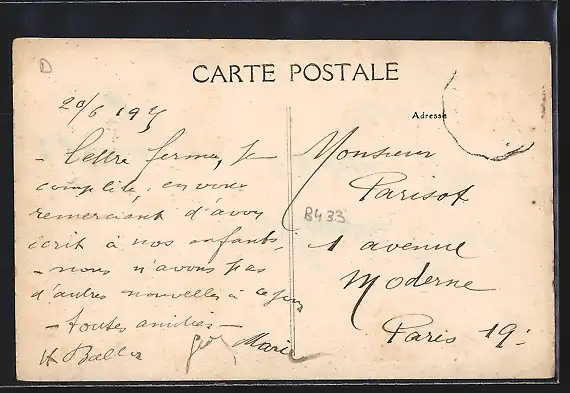 D
CARTE POSTALE
20/6 19
Adresse
- Lettre ferme, je
complète, en vous
remerciant d'avoir
écrit à nos enfants,
- nous n'avons pas
d'autres nouvelles à ce jour
- toutes amitiés -
Marie
Monsieur
Parisot
8433
1 avenue
Moderne
Paris 19.